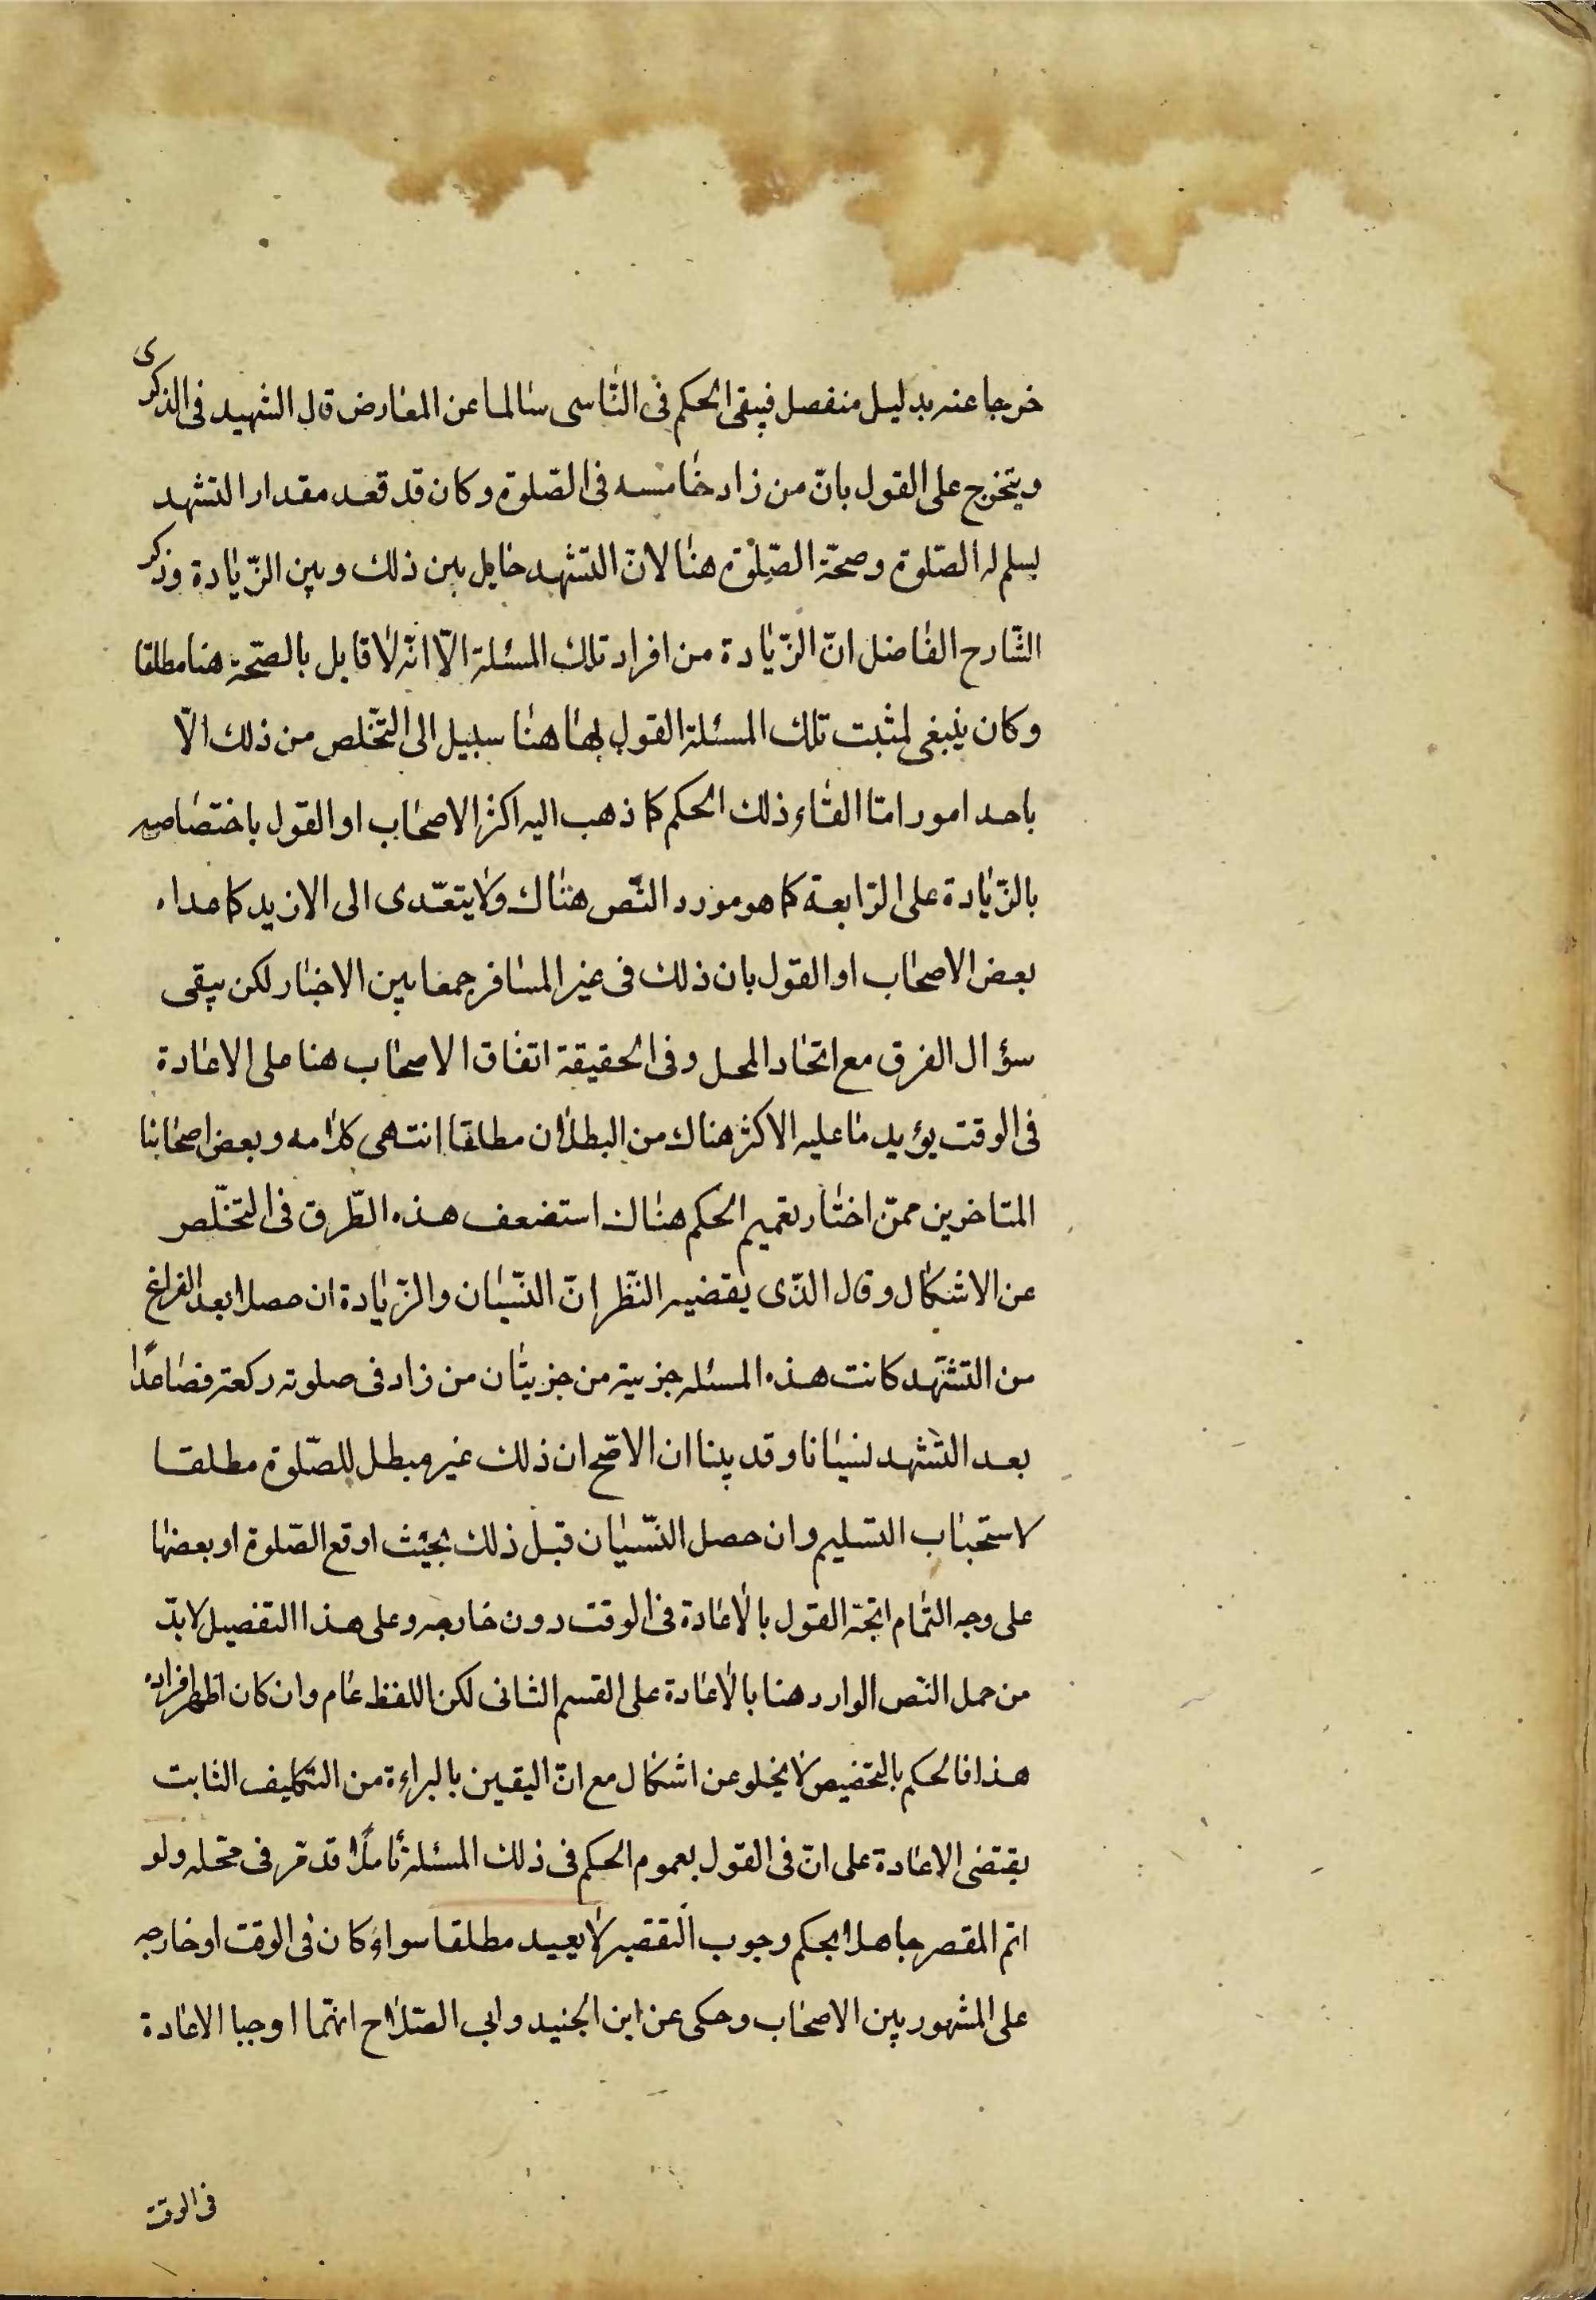 خرجا عنه بدليل منفصل فيبقى الحكم فى النّاسى سالما عن المعارض قال الشهيد فى الذكرى
ويتخرج على القول بانّ من زاد خامسه فى الصّلوة وكان قد قعد مقدار التشهد
يسلم له الصّلوة وصحّة الصّلوة هنا لانّ التشهد حايل بين ذلك وبين الزّيادة وذكر
الشّارح الفاضل انّ الزّيادة من افراد تلك المسئلة الاّ انّه لا قايل بالصّحّة هنا مطلقا
وكان ينبغى لمثبت تلك المسئلة القول بها هنا سبيل الى التّخلص من ذلك الاّ
باحد امور امّا الغاء ذلك الحكم كما ذهب اليه اكثر الاصحاب او القول باختصاصه
بالزّيادة على الرّابعة كما هو مورد النّص هناك ولا يتعّدى الى الازيد كما عداه
بعض الاصحاب او القول بان ذلك فى غير المسافر جمعا بين الاخبار لكن يبقى
سؤال الفرق مع اتحاد المحل وفى الحقيقة اتفاق الاصحاب هنا على الاعادة
فى الوقت يؤيد ما عليه الاكثر هناك من البطلان مطلقا انتهى كلامه وبعض اصحابنا
المتاخرين ممّن اختار تعميم الحكم هناك استضعف هذه الطّرق فى التخلّص
عن الاشكال وقال الذّى يقضيه النّظر انّ النّسيان والزّيادة ان حصلا بعد الفراغ
من التشّهد كانت هذه المسئله جزيية من جزييّات من زاد فى صلوته ركعة فصاعدًا
بعد التشهد نسيانا وقد بينا ان الاصّح ان ذلك غير مبطل للصّلوة مطلقا
لاستحباب التسليم وان حصل النّسيان قبل ذلك بحيث اوقع الصّلوة او بعضها
على وجه التمام اتجّه القول بالاعادة فى الوقت دون خارجه وعلى هذا التفصيل لا بدّ
من حمل النّص الوارد هنا بالاعادة على القسم الثانى لكن اللفظ عام وان كان اظهر افراده
هذا فالحكم بالتخصيص لا يخلو عن اشكال مع انّ اليقين بالبراءة من التكليف الثابت
يقتضى الاعادة على انّ فى القول بعموم الحكم فى ذلك المسئلة تأملًا قد مّر فى محّله ولو
اتم المقصر جاهلا بحكم وجوب التقصير لا يعيد مطلقا سواء كان فى الوقت او خارجه
على المشهور بين الاصحاب وحكى عن ابن الجنيد وابى الصّلاح انهّما اوجبا الاعادة
فى الوقت